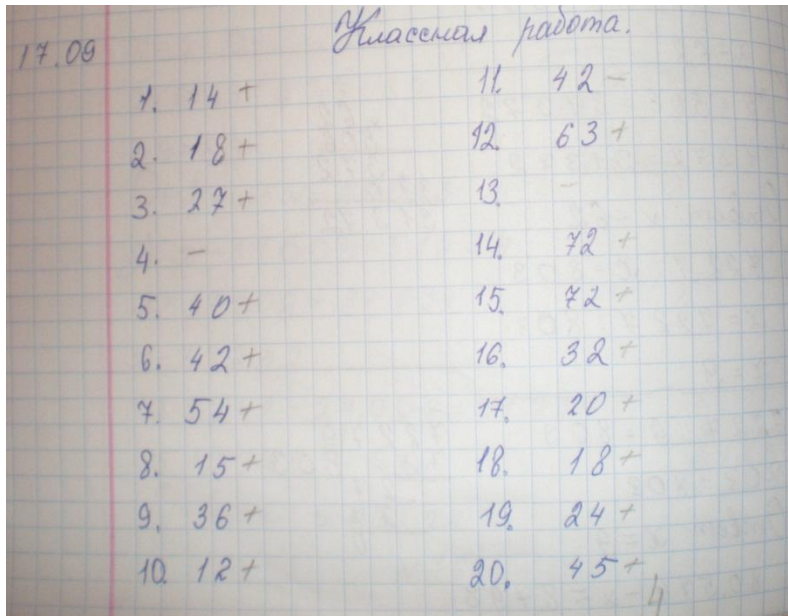 17.09
Классная работа.
1. 14 +
2. 18 +
3. 27 +
4. −
5. 40 +
6. 42 +
7. 54 +
8. 15 +
9. 36 +
10. 12 +
11. 42 −
12. 63 +
13. −
14. 72 +
15. 72 +
16. 32 +
17. 20 +
18. 18 +
19. 24 +
20. 45 +
4